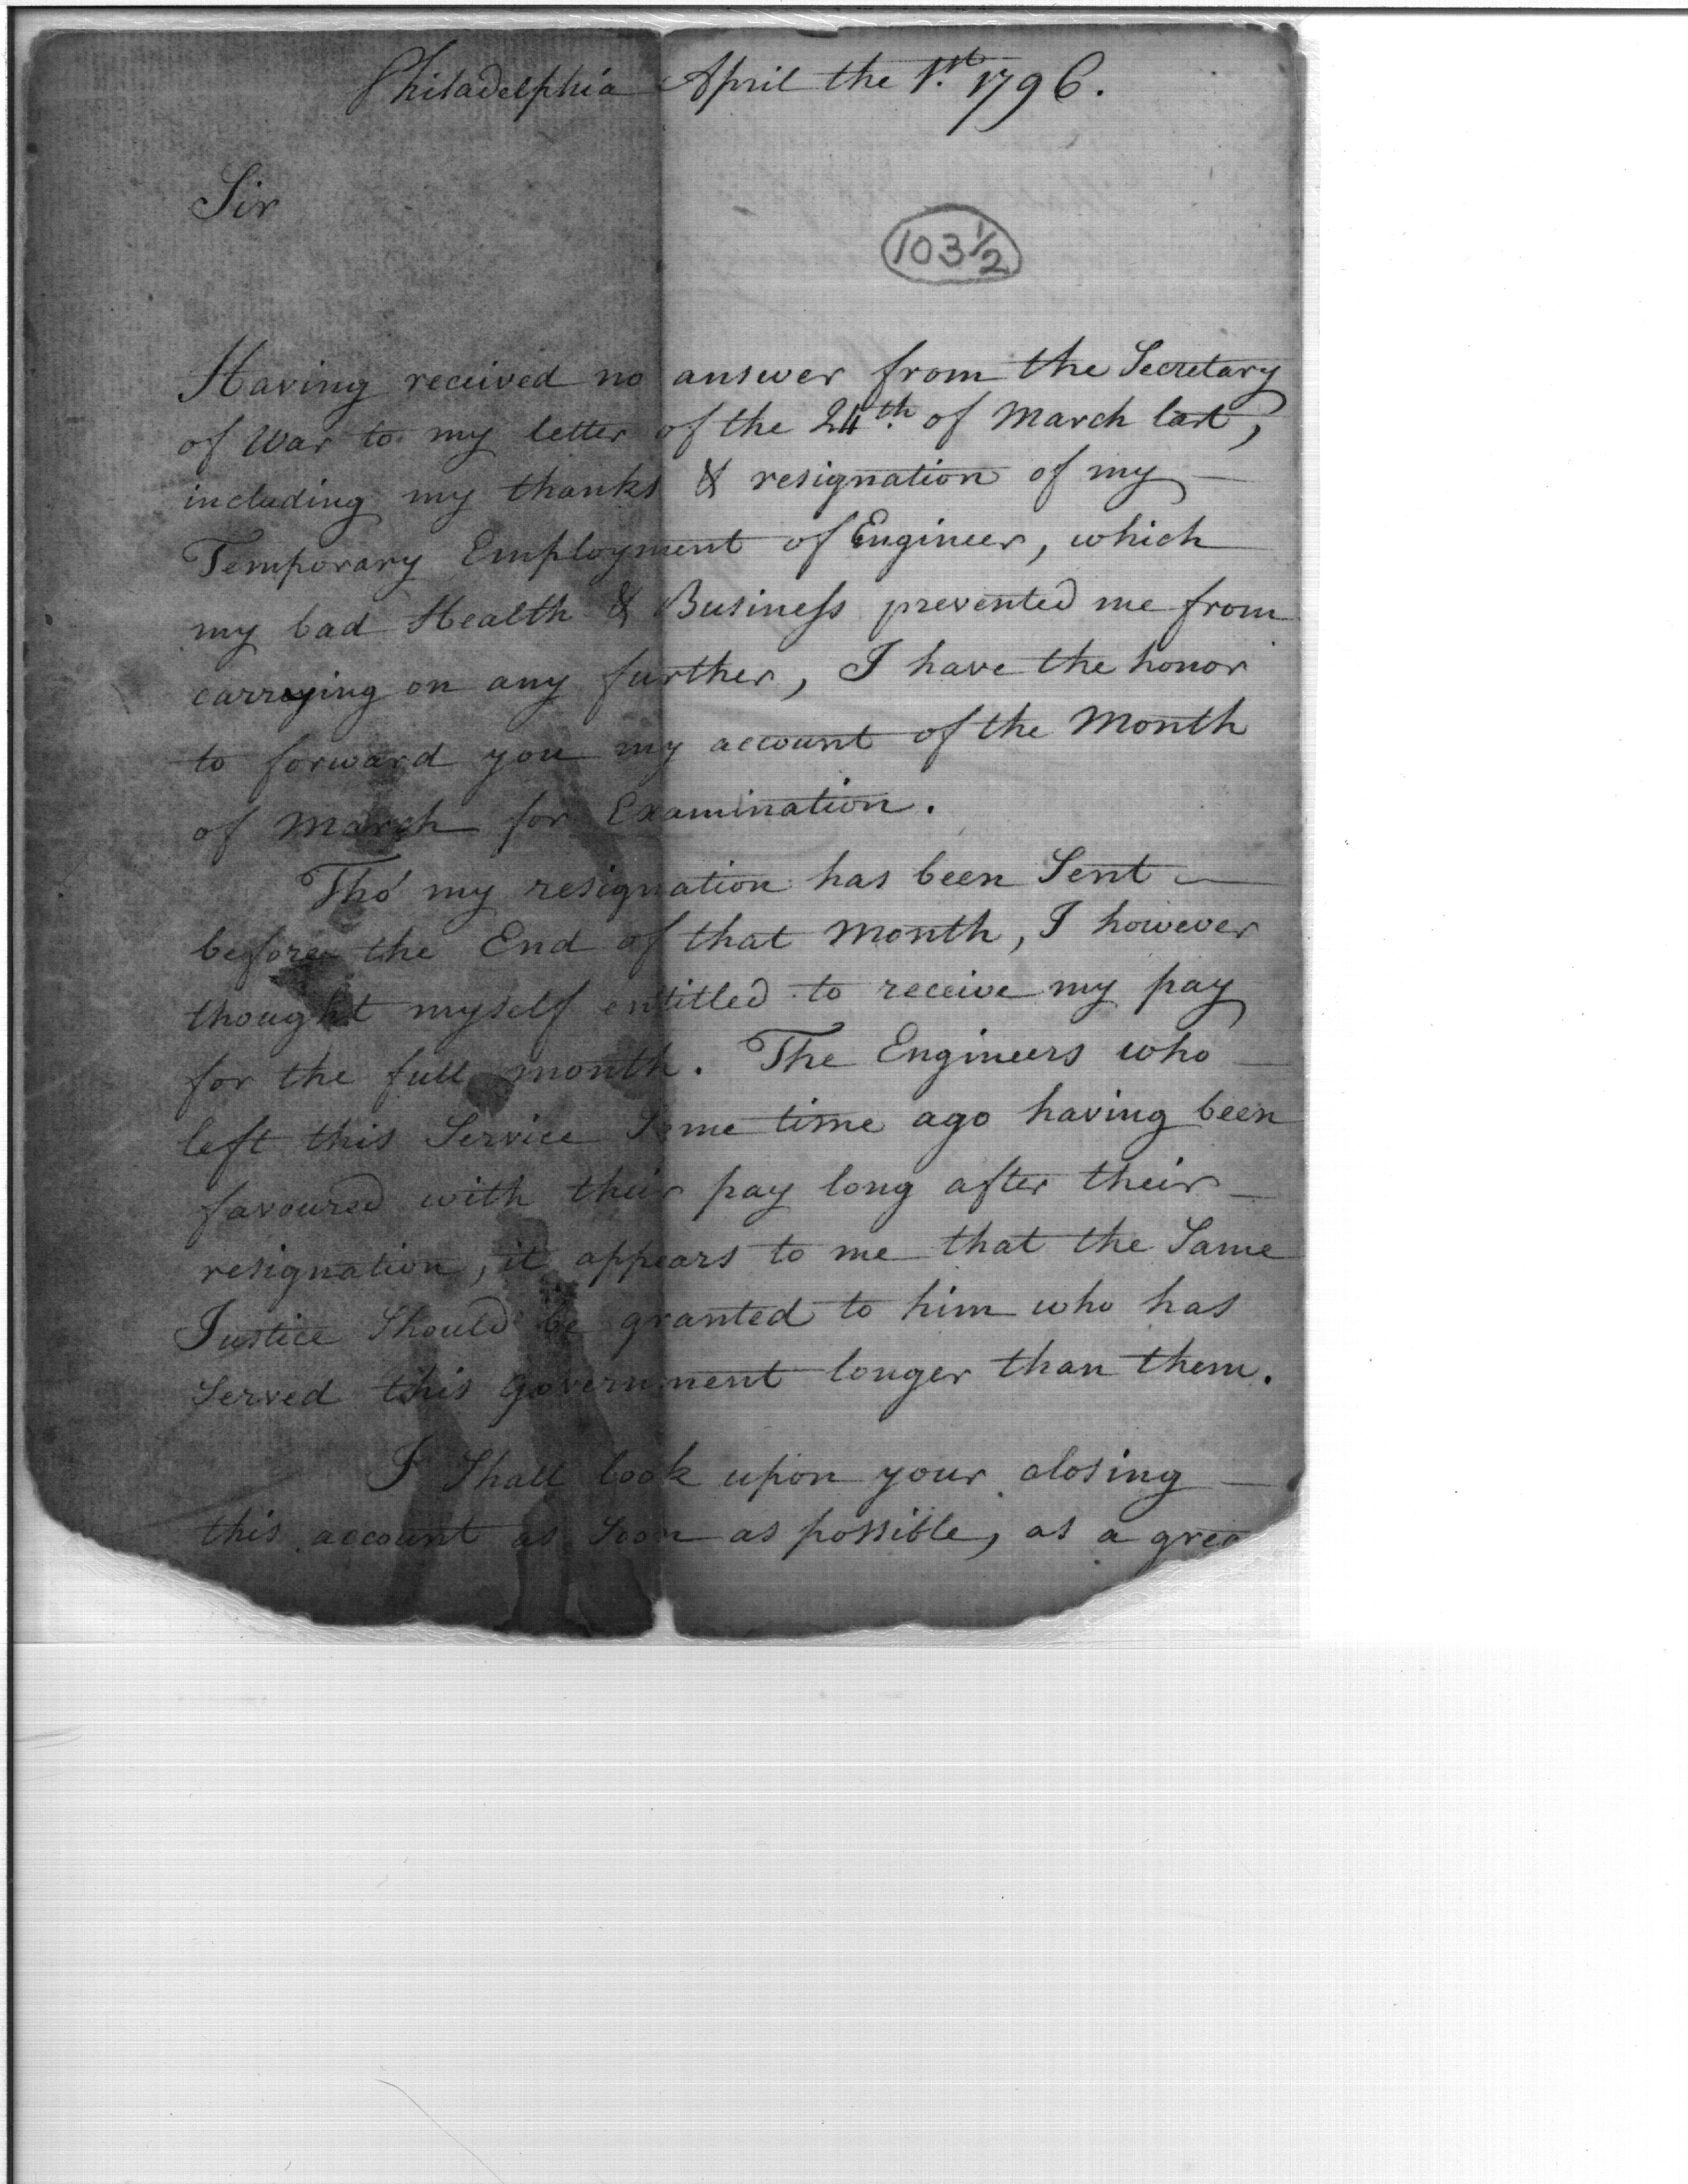 Philadelphia April the 1st. 1796.
Sir
103 1/2
Having received no answer from the Secretary
of War to my letter of the 24th. of March last,
including my thanks & resignation of my —
Temporary Employment of Engineer, which
my bad Health & Business prevented me from
carrying on any further, I have the honor
to forward you my account of the Month
of March for Examination.
Tho' my resignation has been Sent —
before the End of that Month, I however
thought myself entitled to receive my pay
for the full month. The Engineers who —
left this Service Some time ago having been
favoured with their pay long after their —
resignation, it appears to me that the Same
Justice Should be granted to him who has
Served this Government longer than them.
I Shall look upon your closing —
this account as Soon as possible, as a grea